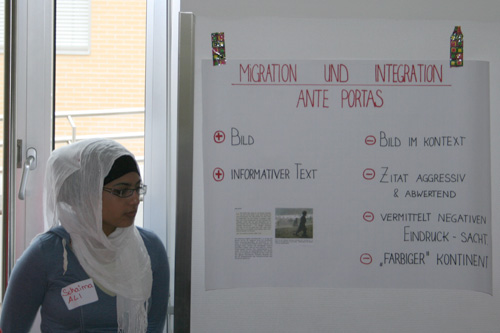 MIGRATION UND INTEGRATION
ANTE PORTAS
+ BILD
+ INFORMATIVER TEXT
- BILD IM KONTEXT
- ZITAT AGGRESSIV
& ABWERTEND
- VERMITTELT NEGATIVEN
EINDRUCK - SACHT.
- „FARBIGER" KONTINENT
ALI